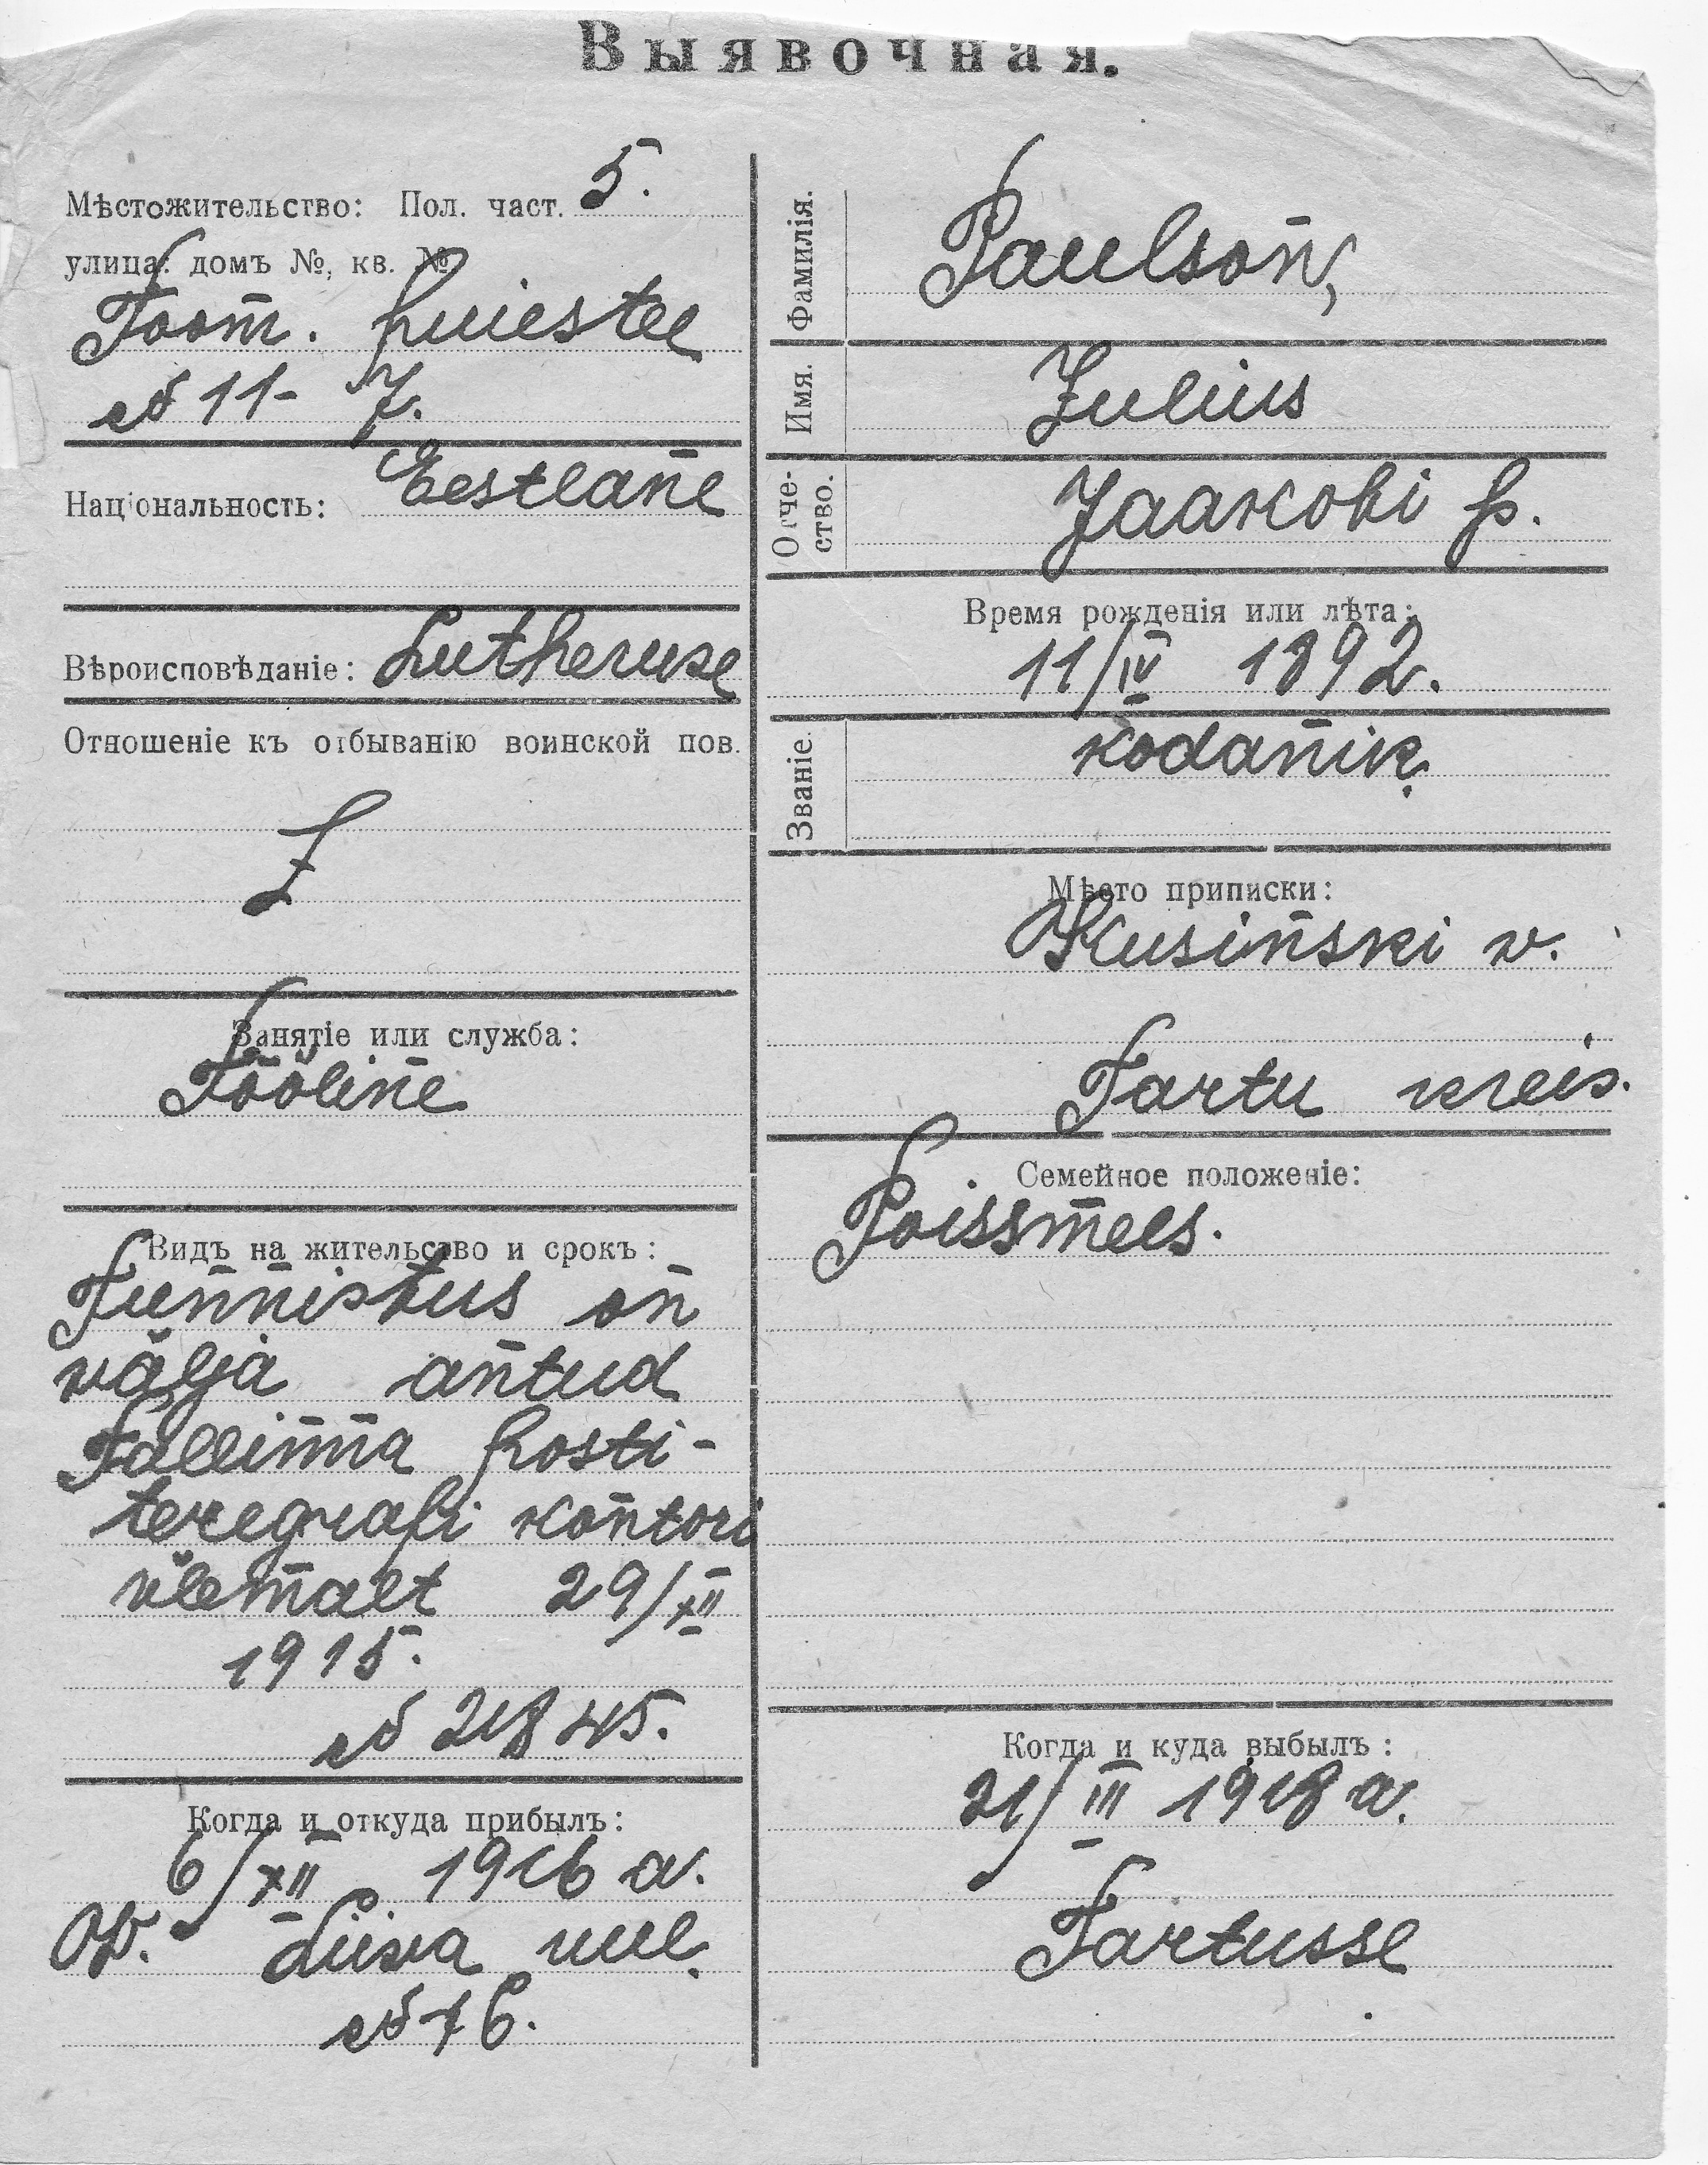 Выявочная.
Мѣстожительство: Пол. част. 5.
улица: домъ №, кв. №
Toom. puiestee
№ 11- 7.
Національность: Eestlane
Вѣроисповѣданіе: Lutheruse
Отношеніе къ отбыванію воинской пов.
Занятіе или служба:
Tööline
Видъ на жительство и срокъ:
Tunnistus on
välja antud
Tallinna posti-
telegrafi kontori
ülemalt 29/XII
1915.
№ 21845.
Когда и откуда прибылъ:
6/XII 1916 a.
W. Liiva uul.
№ 16.
Фамилія. Paulson,
Имя. Julius
Отче-ство. Jaakobi p.
Время рожденія или лѣта:
11/IV 1892.
Званіе. kodanik.
Мѣсто приписки:
Kusinski v.
Tartu kreis.
Семейное положеніе:
Poissmees.
Когда и куда выбылъ:
21/III 1918 a.
Tartusse